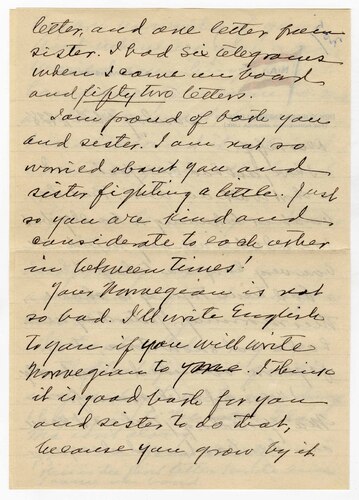 letter, and one letter from
sister. I had six telegrams
when I came on board
and fifty two letters.
I am proud of both you
and sister. I am not so
worried about you and
sister fighting a little. Just
so you are kind and
considerate to each other
in between times!
Your Norwegian is not
so bad. I'll write English
to you if you will write
Norwegian to me. I think
it is good both for you
and sister to do that,
because you grow by it